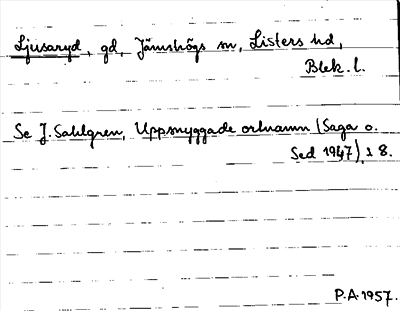 Ljusaryd, gd, Jämshögs sn, Listers hd,
Blek. l.
Se J. Sahlgren, Uppsnyggade ortnamn (Saga o.
Sed 1947), s 8.
P.A. 1957.